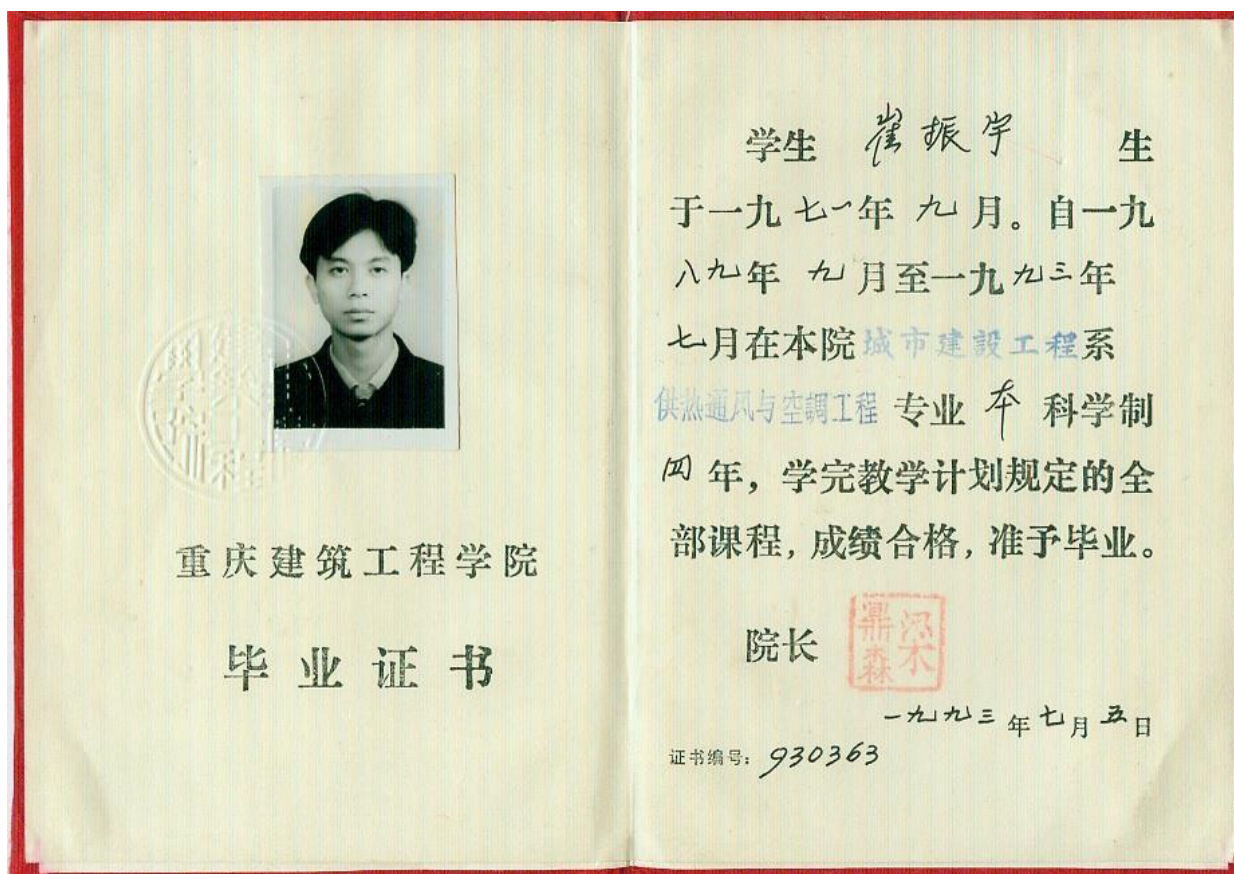 重庆建筑工程学院
毕业证书
学生 崔振宇 生
于一九七一年九月。自一九
八九年九月至一九九三年
七月在本院城市建設工程系
供热通风与空調工程 专业 本 科学制
四年，学完教学计划规定的全
部课程，成绩合格，准予毕业。
院长 梁鼎森
一九九三年七月五日
证书编号：930363